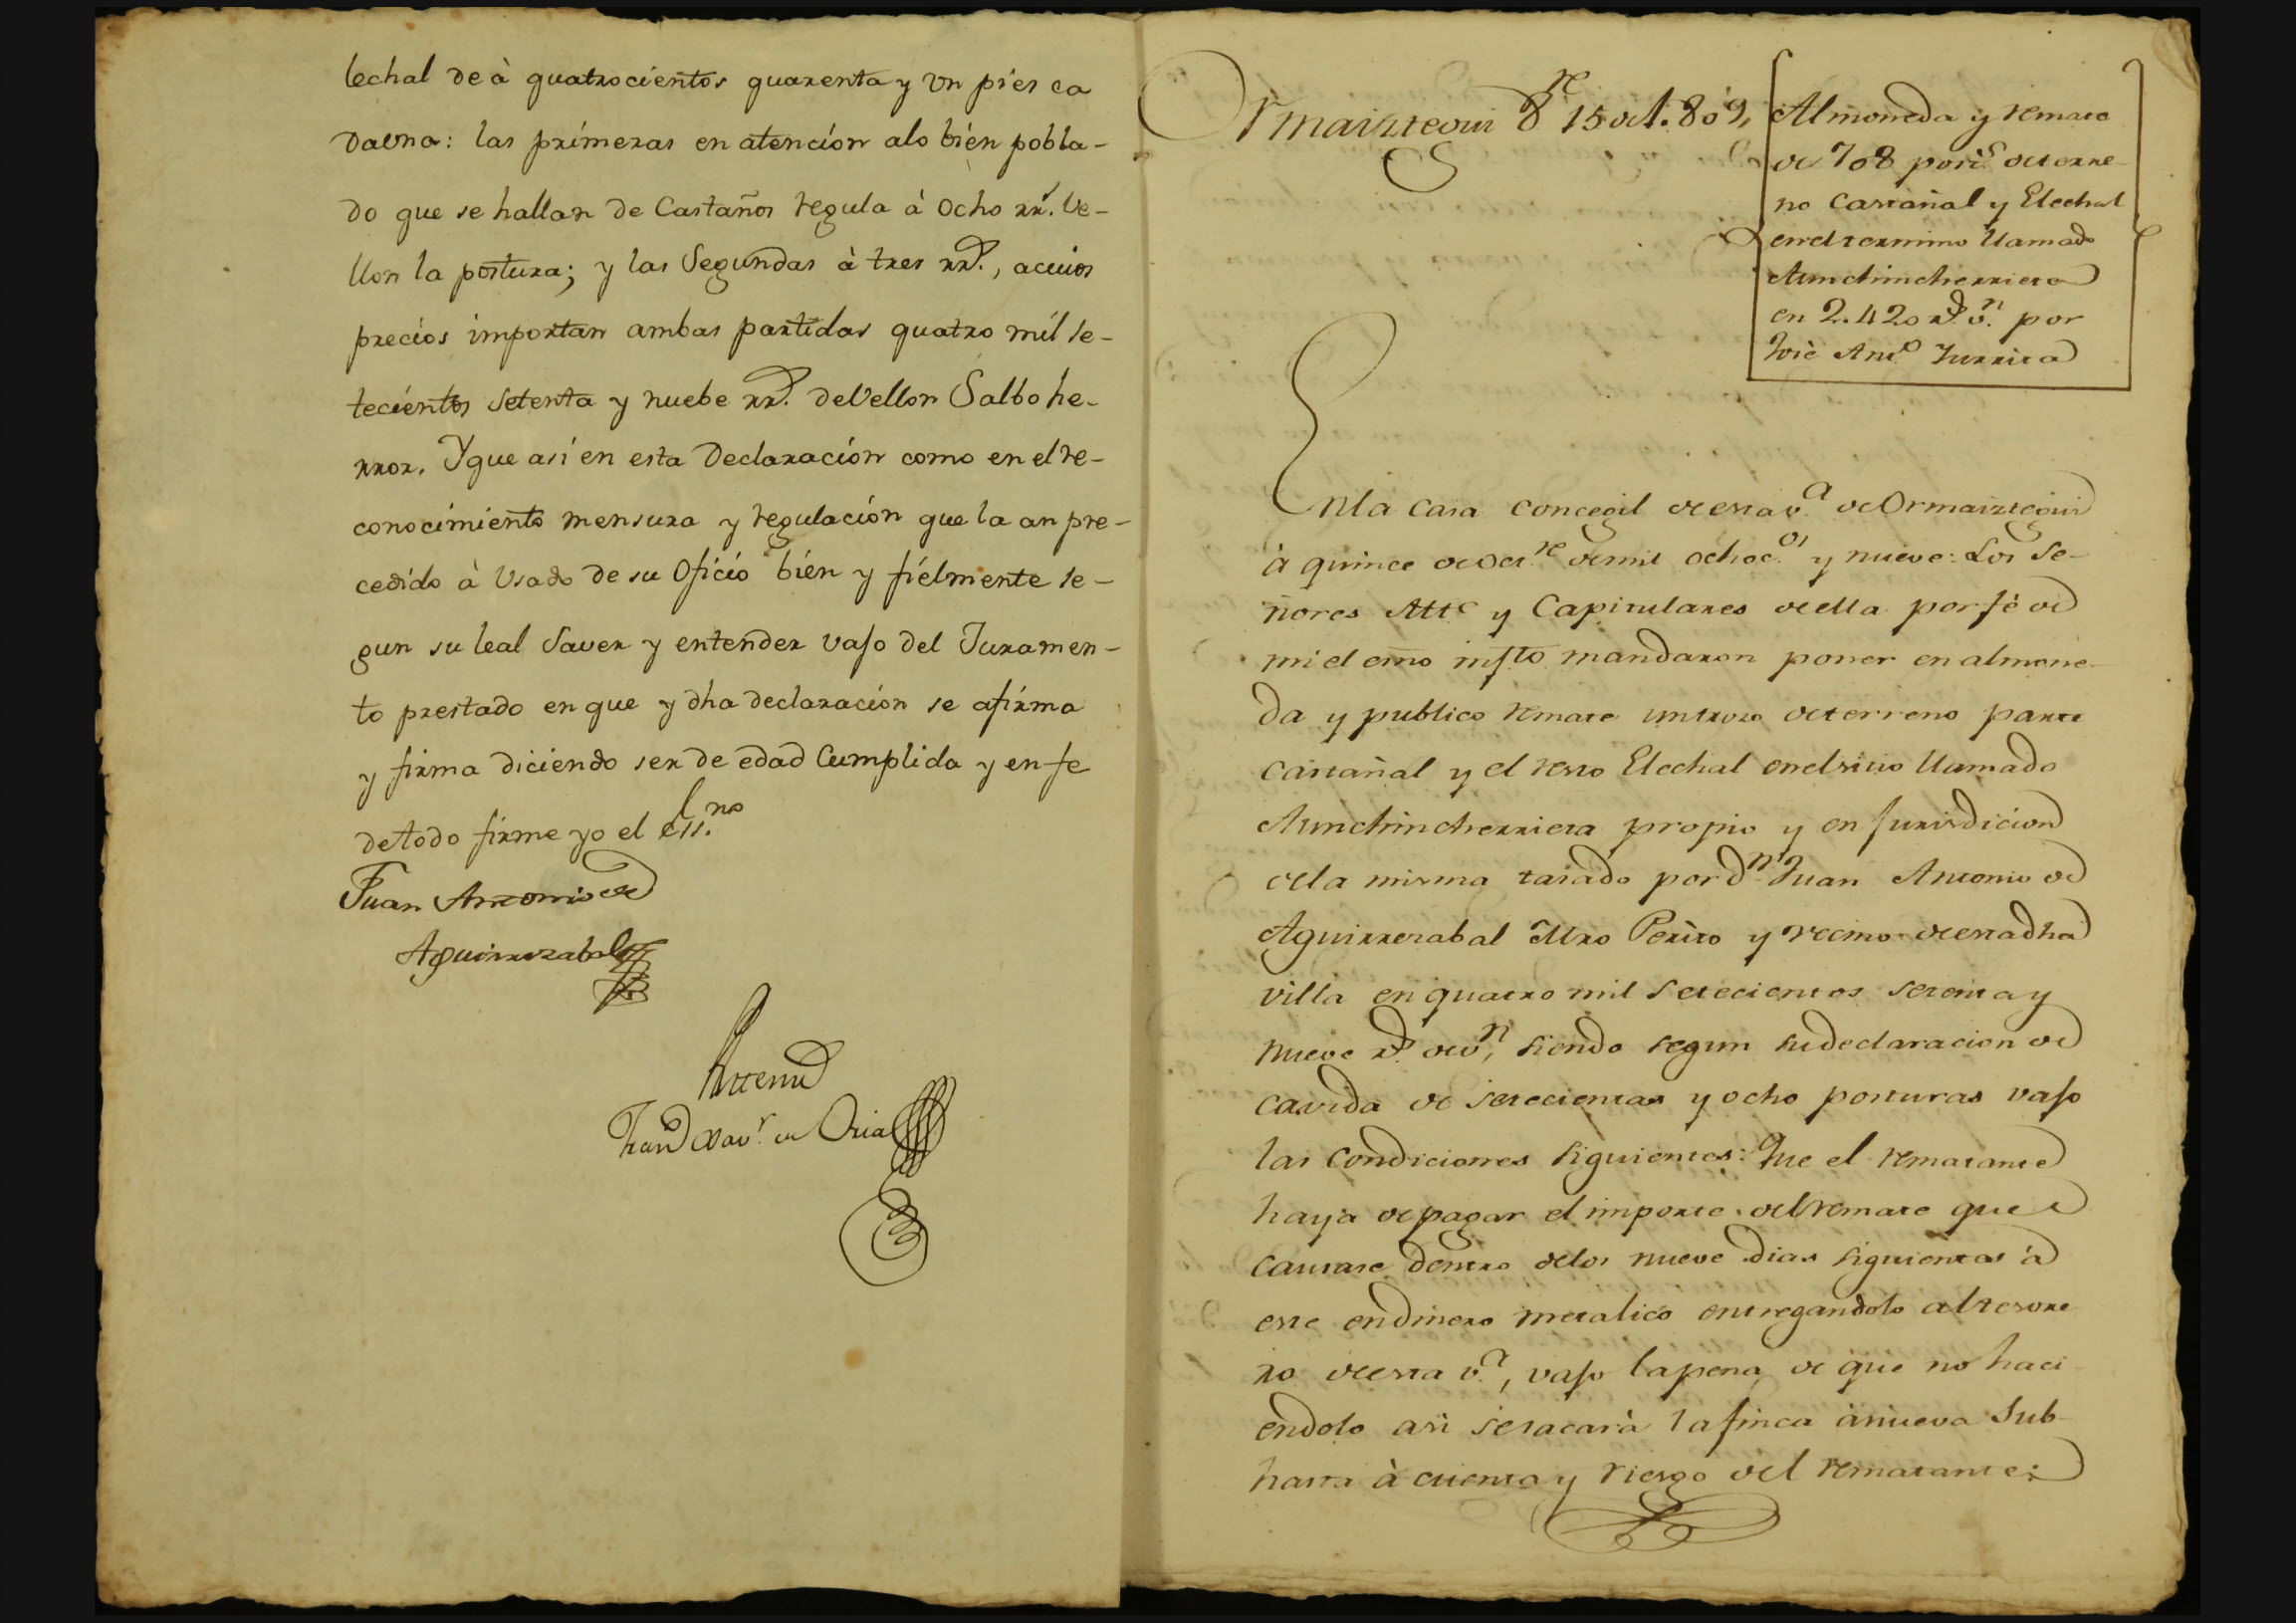 lechal de à quatrocientos quarenta y un pies ca
dauna: las primeras en atención alo bién pobla-
do que se hallan de Castaños regula à ocho rr.s Ve-
llon la postura; y las Segundas à tres rr.s, acuios
precios importan ambas partidas quatro mil se-
tecientos setenta y nuebe rr.s de Vellon Salbo he-
rror. Y que asi en esta Declaración como en el re-
conocimiento mensura y regulación que la an pre-
cedido à Usado de su Oficio bién y fiélmente se-
gun su leal Saver y entender vajo del Juramen-
to prestado en que y dha declaración se afirma
y firma diciendo ser de edad Cumplida y en fe
de todo firme yo el ess.no
Juan Antonio de
Aguirrezabal
Antemi
Fran.co Xav.r de Oria
Ormaiztegui 8.re 15 oct. 809,
Almoneda y remate
de 708 post.s de terre-
no Castañal y Elechal
en el termino llamado
Aunchincherrieta
en 2.420 r.s v.n por
José Ant.o Iurrita
En la casa concegil de esta v.a de Ormaiztegui
à quince de oct.re de mil ochoc.os y nueve: Los Se-
ñores Alt.e y Capitulares de ella por fé de
mi el essno infto mandaron poner en almone-
da y publico remate un trozo de terreno parte
castañal y el resto Elechal en el sitio llamado
Aunchincherrieta propio y en jurisdicion
de la misma tasado por d.n Juan Antonio de
Aguirrezabal Mro Perito y vecino de esta dha
villa en quatro mil setecientos setenta y
nueve r.s de v.n, siendo segun su declaracion de
cavida de setecientas y ocho posturas vajo
las condiciones siguientes: Que el rematante
haya de pagar el importe del remate que se
causare dentro de los nueve dias siguientes à
este en dinero metalico entregandolo al tesore
ro de esta v.a, vajo la pena de que no haci
endolo asi se sacarà la finca à nueva Sub-
hasta à cuenta y riesgo del rematante: